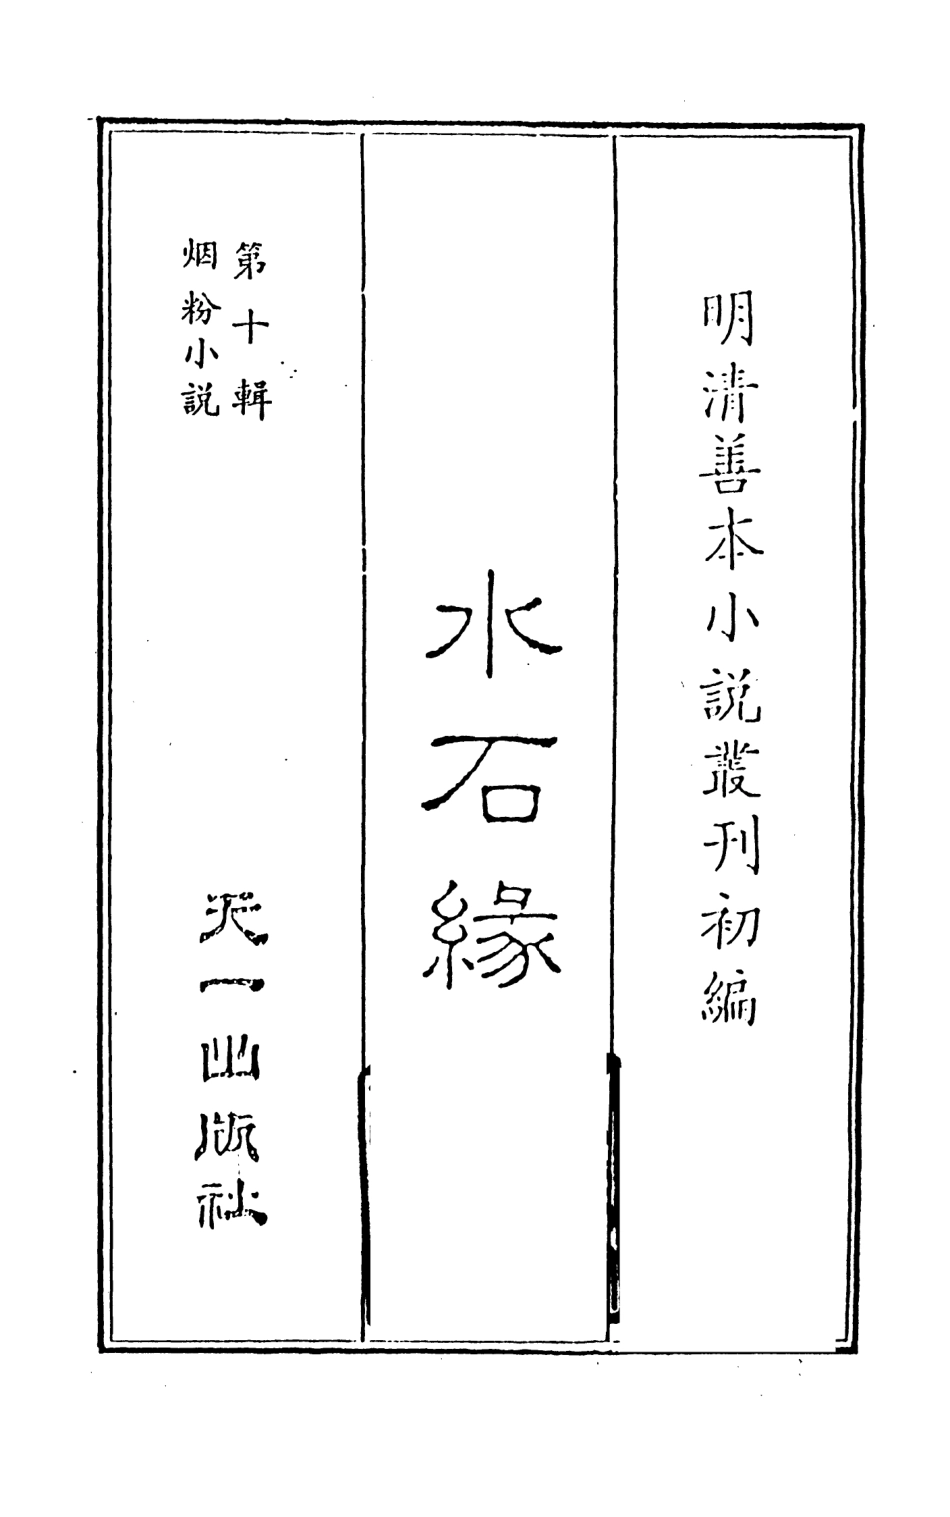 明清善本小説叢刊初編
水石緣
第十輯
烟粉小説
天一出版社